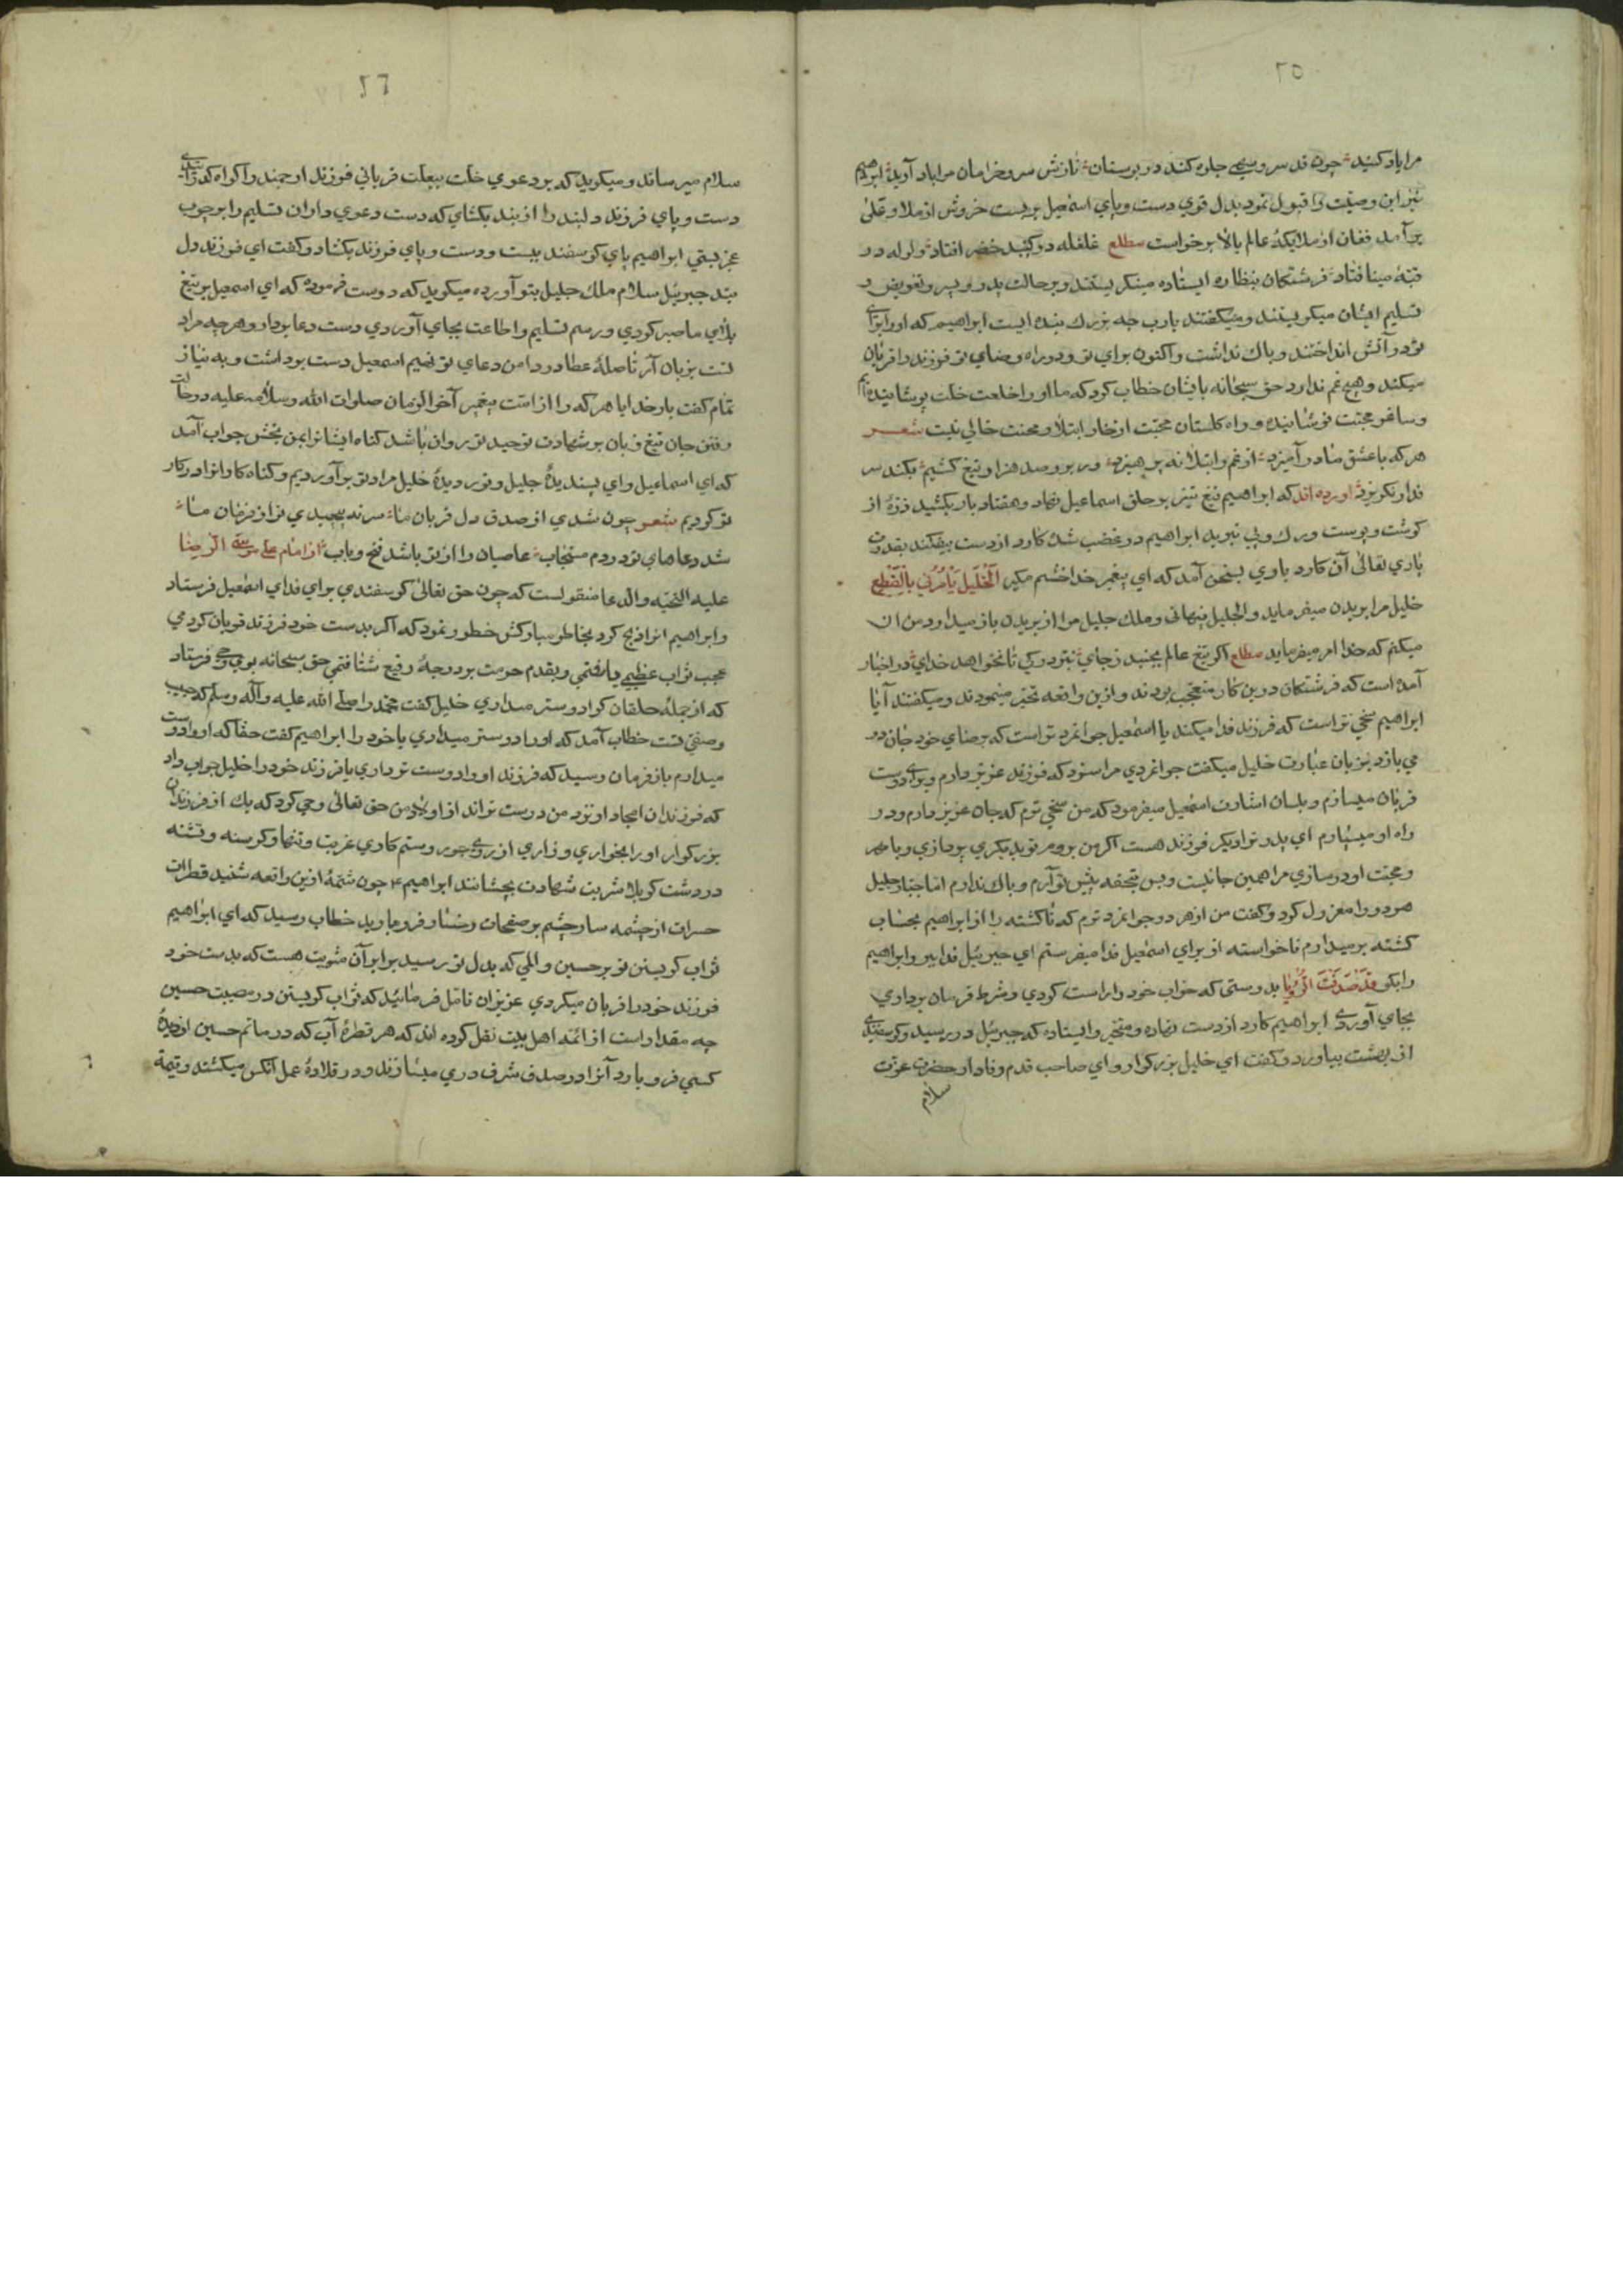 ٢٥
مرا یاد کنید چون قد سرو سهی جلوه کند در بوستان نازش سرو خرامان مرا یاد آرید ابراهیم
نیز این وصیت را قبول نمود بدل قوي دست و پاي اسمعیل بر بست خروش از ملاء اعلی
بر آمد فغان از ملایکهٔ عالم بالا برخواست مطلع غلغله در کنبد خضر افتاد ولوله در
قبّهٔ مینا فتاد فرشتکان بنظاره ایستاده مینکریستند و بر حالت پدر و پسر و تفویض و
تسلیم ایشان میکریستند و میکفتند یارب چه بزرك بنده ایست ابراهیم که او را براي
تو در آتش انداختند و باك نداشت و اکنون براي تو و در راه رضاي تو فرزند را قربان
میکند و هیچ غم ندارد حق سبحانه بایشان خطاب کرد که ما او را خلعت خلت پوشانیده ایم
و ساغر محبّت نوشانیده و راه کلستان محبّت از خار ابتلا و محنت خالي نیست شعر
هر که با عشق ما در آمیزد از غم و ابتلا نه پرهیزد ور برو صد هزار تیغ کشیم بکند سر
فدا و نکریزد آورده اند که ابراهیم تیغ تیز بر حلق اسماعیل نهاد و هفتاد بار بکشید ذرّهٔ از
کوشت و پوست و رك و پي نبرید ابراهیم در غضب شد کارد از دست بیفکند بقدرت
باري تعالی آن کارد باوي بسخن آمد که اي پیغمبر خدا خشم مکیر اَلْخَلیل یَأمُرُني بِالْقَطعِ
خلیل مرا بریدن میفرماید و الجلیل ینهاني و ملك جلیل مرا از بریدن باز میدارد من آن
میکنم که خدا امر میفرماید مطلع اکر تیغ عالم بجنبد ز جاي نبرد رکي تا نخواهد خداي در اخبار
آمده است که فرشتکان درین کار متعجّب بودند و ازین واقعه تحیّر مینمودند و میکفتند آیا
ابراهیم سخي تر است که فرزند فدا میکند یا اسمعیل جوانمرد تر است که برضاي خود جان در
مي بازد بزبان عبارت خلیل میکفت جوانمردي مرا سزد که فرزند عزیز دارم و براي دوست
قربان میسازم و بلسان اشارت اسمعیل میفرمود که من سخي ترم که جان عزیز دارم و در
راه او میسپارم اي پدر ترا دیکر فرزند هست اکر من بروم تو بدیکري پردازي و با مهر
و محبّت او در سازي مرا همین جانیست و بس بتحفه پیش تو آرم و باك ندارم امّا جبّار جلیل
هر دو را معزول کرد و کفت من از هر دو جوانمرد ترم که نا کشته را از ابراهیم بحساب
کشته بر میدارم ناخواسته از براي اسمعیل فدا میفرستم اي جبرئیل فدا ببر و ابراهیم
را بکو قَدْ صَدَّقْتَ الرُّؤیا بدرستي که خواب خود را راست کردي و شرط فرمان برداري
بجاي آوردي ابراهیم کارد از دست نهاده و متحیّر وا ایستاده که جبرئیل در رسید و کوسفندي
از بهشت بیاورد و کفت اي خلیل بزرکوار و اي صاحب قدم وفادار حضرت عزّت
سلام
٢٦
سلام میرساند و میکوید که بر دعوي خلّت ببعلت قرباني فرزند ارجمند را کواه کذرانیدي
دست و پاي فرزند دلبند را از بند بکشاي که دست دعوي داران تسلیم را بر چوب
عجز بستي ابراهیم پاي کوسفند ببست و دست و پاي فرزند بکشاد و کفت اي فرزند دل
بند جبرئیل سلام ملك جلیل بتو آورده میکوید که دوست فرموده که اي اسمعیل بر تیغ
بلاي ما صبر کردي و رسم تسلیم و اطاعت بجاي آوردي دست دعا بردار و هر چه مراد
تست بزبان آر تا صلهٔ عطا در دامن دعاي تو نهیم اسمعیل دست برداشت و به نیاز
تمام کفت بار خدایا هر که را از امّت پیغمبر آخر الزمان صلوات الله و سلامه علیه در حالت
رفتن جان تیغ زبان بر شهادت توحید تو روان باشد کناه ایشانرا بمن بخش جواب آمد
که اي اسماعیل و اي پسندیدهٔ جلیل و نور دیدهٔ خلیل مراد تو بر آوردیم و کناه کارانرا در کار
تو کردیم شعر چون شدي از صدق دل قربان ما سر نه پیچیدي تو از فرمان ما
شد دعاهاي تو در دم مستجاب عاصیان را از تو باشد فتح و باب از امام علي موسي الرّضا
علیه التحیّه و الدعا منقولست که چون حق تعالی کوسفندي براي فداي اسمعیل فرستاد
و ابراهیم انرا ذبح کرد بخاطر مبارکش خطور نمود که اکر بدست خود فرزند قربان کردمي
عجب ثواب عظیمي یافتمي و بقدم حرمت بر درجهٔ رفیع شتافتمي حق سبحانه بوي وحي فرستاد
که از جملهٔ خلقان کرا دوستر میداري خلیل کفت محمّد را صلّی الله علیه و آله و سلّم که حبیب
و صفيّ تست خطاب آمد که او را دوستر میداري یا خود را ابراهیم کفت حقّا که او را دوست
میدارم باز فرمان رسید که فرزند او را دوست تر داري یا فرزند خود را خلیل جواب داد
که فرزندان امجاد او نزد من دوست تراند از اولاد من حق تعالی وحي کرد که یك از فرزندان
بزرکوار او را بخواري و زاري از روي جور و ستم کاري غریب و تنها و کرسنه و تشنه
در دشت کربلا شربت شهادت بچشانند ابراهیم ع چون شمّهٔ ازین واقعه شنید قطرات
حسرات از چشمه سار چشم بر صفحات رخسار فرو بارید خطاب رسید که اي ابراهیم
ثواب کریستن تو بر حسین و المي که بدل تو رسید برابر آن مثوبت هست که بدست خود
فرزند خود را قربان میکردي عزیزان تامّل فرمائید که ثواب کریستن در مصیبت حسین
چه مقدار است از ائمّه اهل بیت نقل کرده اند که هر قطرهٔ آب که در ماتم حسین از دیدهٔ
کسي فرو بارد آنرا در صدف شرف درّي میسازند و در قلادهٔ عمل آنکس میکشند و قیمة